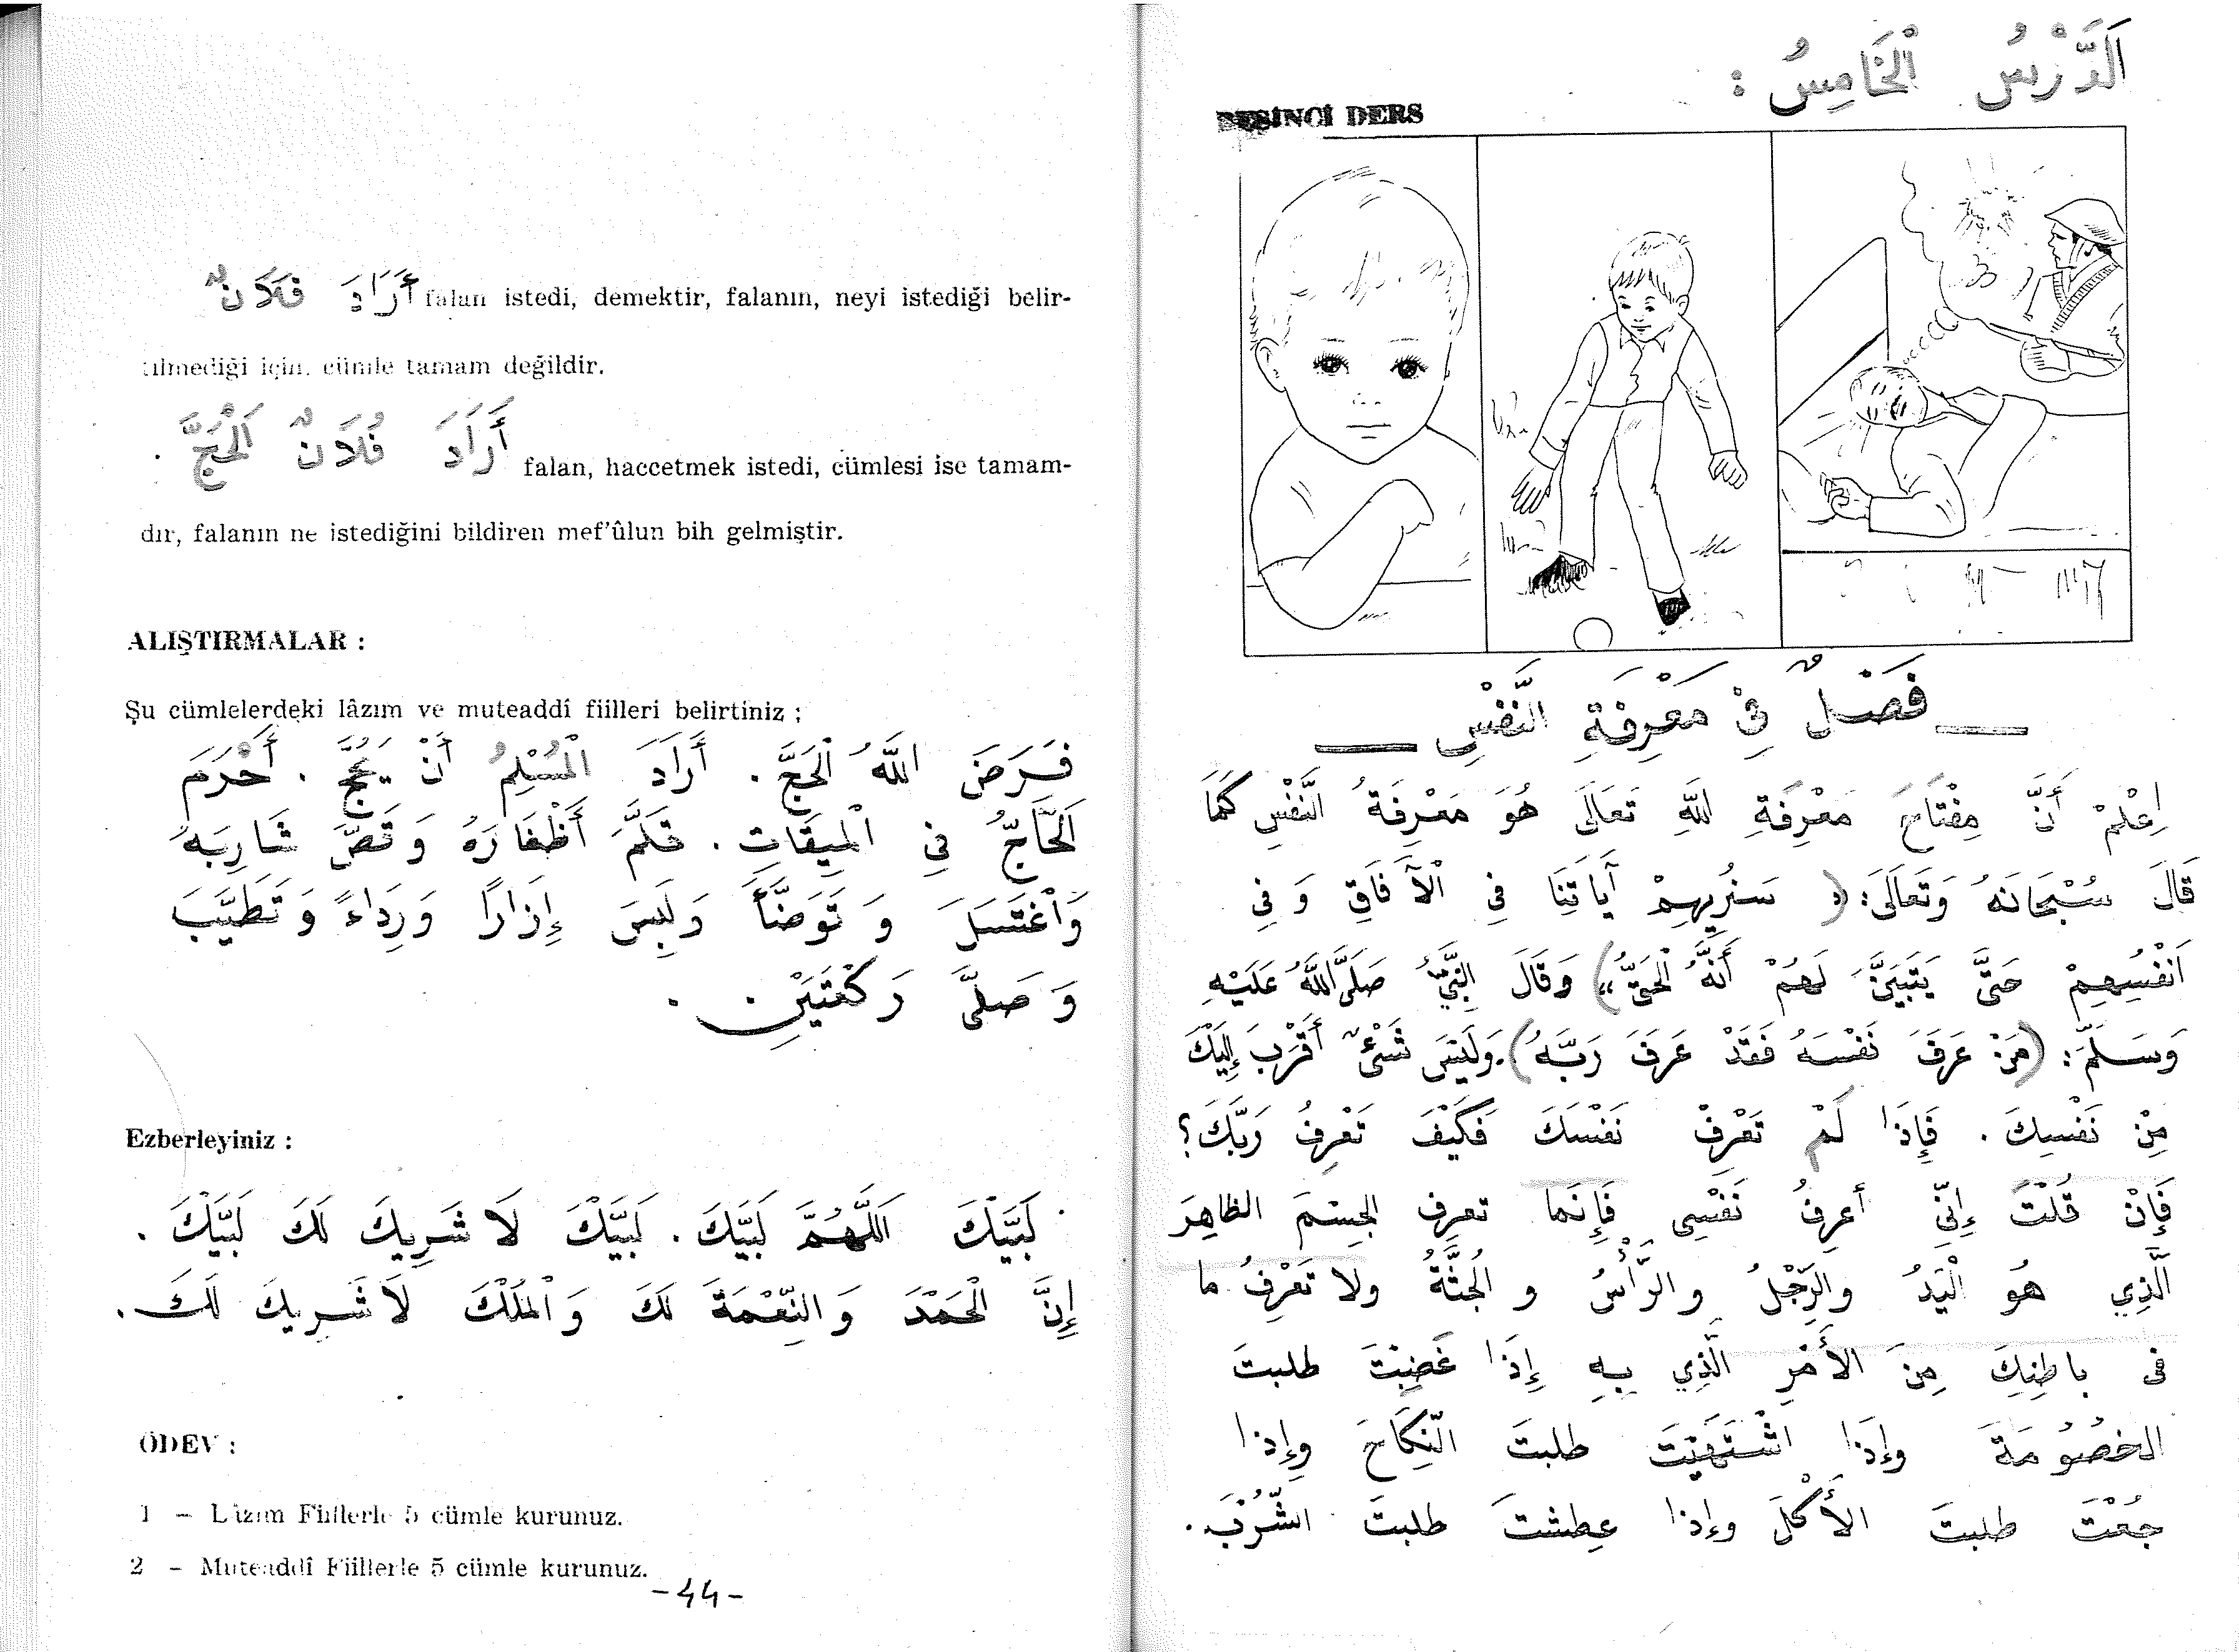 أَرَادَ فُلَانٌ falan istedi, demektir, falanın, neyi istediği belir-
tilmediği için, cümle tamam değildir.
أَرَادَ فُلَانٌ اَلْحَجَّ . falan, haccetmek istedi, cümlesi ise tamam-
dır, falanın ne istediğini bildiren mef'ûlun bih gelmiştir.
ALIŞTIRMALAR :
Şu cümlelerdeki lâzım ve muteaddî fiilleri belirtiniz ;
فَرَضَ اللَّهُ اَلْحَجَّ . أَرَادَ الْمُسْلِمُ أَنْ يَحُجَّ . أَحْرَمَ
اَلْحَاجُّ فِي الْمِيقَاتِ . قَلَّمَ أَظْفَارَهُ وَ قَصَّ شَارِبَهُ
وَاغْتَسَلَ وَ تَوَضَّأَ وَ لَبِسَ إِزَارًا وَ رِدَاءً وَ تَطَيَّبَ
وَ صَلَّى رَكْعَتَيْنِ .
Ezberleyiniz :
لَبَّيْكَ اَللَّهُمَّ لَبَّيْكَ . لَبَّيْكَ لَا شَرِيكَ لَكَ لَبَّيْكَ .
إِنَّ الْحَمْدَ وَ النِّعْمَةَ لَكَ وَ الْمُلْكَ لَا شَرِيكَ لَكَ .
ÖDEV :
1 — Lâzım Fiillerle 5 cümle kurunuz.
2 — Muteaddî Fiillerle 5 cümle kurunuz.
- 44 -
اَلدَّرْسُ الْخَامِسُ :
BEŞİNCİ DERS
فَصْلٌ فِي مَعْرِفَةِ النَّفْسِ
اِعْلَمْ أَنَّ مِفْتَاحَ مَعْرِفَةِ اللَّهِ تَعَالَى هُوَ مَعْرِفَةُ النَّفْسِ كَمَا
قَالَ سُبْحَانَهُ وَتَعَالَى: (( سَنُرِيهِمْ آيَاتِنَا فِي الْآفَاقِ وَ فِي
اَنْفُسِهِمْ حَتَّى يَتَبَيَّنَ لَهُمْ أَنَّهُ الْحَقُّ )) وَقَالَ النَّبِيُّ صَلَّى اللَّهُ عَلَيْهِ
وَسَلَّمَ: (مَنْ عَرَفَ نَفْسَهُ فَقَدْ عَرَفَ رَبَّهُ). وَلَيْسَ شَيْءٌ أَقْرَبَ إِلَيْكَ
مِنْ نَفْسِكَ . فَإِذَا لَمْ تَعْرِفْ نَفْسَكَ فَكَيْفَ تَعْرِفُ رَبَّكَ؟
فَإِنْ قُلْتَ إِنِّي أعرِفُ نَفْسِي فَإِنَّمَا تعرِف الجِسْمَ الظاهِرَ
الَّذِي هُوَ الْيَدُ والرِّجْلُ والرَّأْسُ و الْجُثَّةُ ولا تَعْرِفُ ما
في باطِنِكَ مِنَ الأَمْرِ الَّذِي بِهِ إِذَا غَضِبْتَ طلبتَ
الخصُومَةَ وإذَا اشْتَهَيْتَ طلبتَ النِّكَاحَ وإِذا
جُعْتَ طلبتَ الأَكْلَ وإذا عطِشتَ طلبتَ الشُّرْبَ .